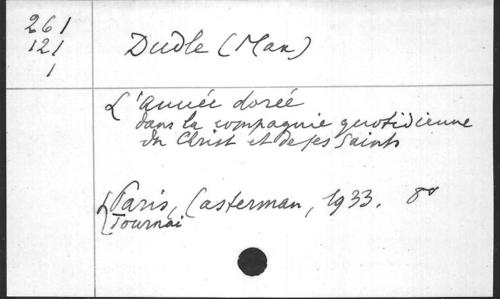 261
121
1
Dudle (Max)
L'année dorée
dans la compagnie quotidienne
du Christ et de ses Saints
Paris, Casterman, 1933. 8º
Tournai